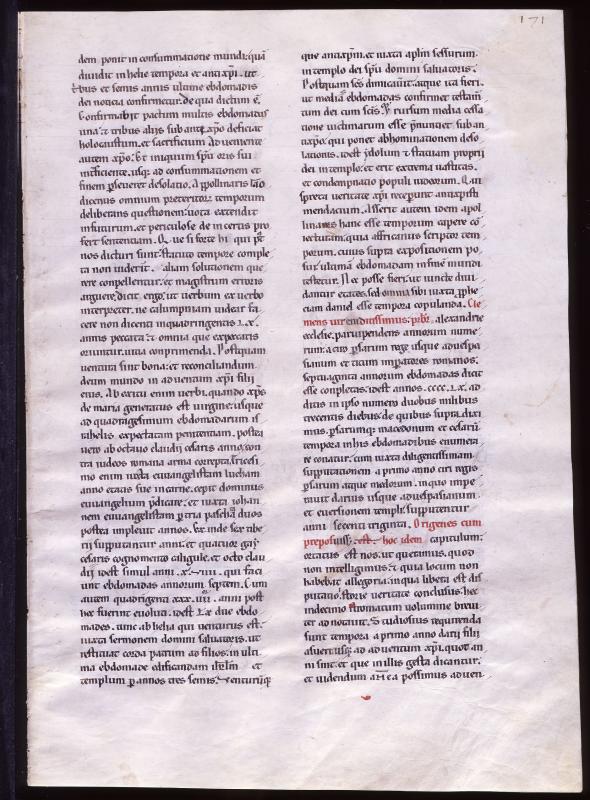 171
dem ponit in consummatione mundi: quā
diuidit in helie tempora et antixp̄i. ut
t̄bus et semis annis ultime ebdomadis
dei noticia confirmetur. de qua dictum ē.
Confirmabit pactum multis ebdomadas
una: & tribus aliis sub antixp̄o deficiat
holocaustum. et sacrificium. Adueniente
autem xp̄o. & iniquum sp̄u oris sui
int̄ficiente. usq; ad consummationem et
finem p̱seueret desolatio. Appollinaris lao
dicenus omnium preteritorum temporum
deliberans questionem: uota extendit
in futurum. et periculose de incertis pro
fert sententiam. Que si forte hi qui p̄
nos dicturi sunt: statuto tempore comple
ta non uiderit. aliam solutionem que
rere conpellentur. et magistrum erroris
arguere. dicit ergo. ut uerbum ex uerbo
interpreter. ne calumpniam uidear fa
cere non dicenti. inquadringentis. xc.
annis peccata: & omnia que expeccatis
oriuntur. uitia conprimenda. Postquam
uentura sint bona: et reconciliandum
deum mundo in aduentum xp̄i filii
eius. Ab exitu enim uerbi. quando xp̄s
de maria generatus est uirgine: usque
ad quadragesimum ebdomadarum is
rahelis expectatam penitentiam. postea
uero ab octauo claudii cesaris anno: con
tra iudeos romana arma correpta. tricesi
mo enim iuxta euuangelistam lucham
anno etatis sue incarne. cepit dominus
euuangelium p̄dicare. et iuxta iohan
nem euuangelistam p̱ tria pascha: duos
postea impleuit annos. Ex inde sex tibe
rii supputantur anni: et quatuor gaii
cesaris cognomento caligule. et octo clau
dii idest simul anni. x̄l.viiii. qui faci
unt ebdomadas annorum septem. Cum
autem quadrigenti xxx.iiii. anni post
hec fuerint euoluti. idest lx due ebdo
mades. tunc ab helia qui uenturus est.
iuxta sermonem domini saluatoris. ut
restituat corda patrum ad filios. in ulti
ma ebdomade edificandam ihr̄lm̄ et
templum p̱ annos tres semis: & enturūq;
que antixp̄m. et iuxta apl̄m sessurum.
in templo dei sp̄u domini saluatoris.
ut mediā ebdomadas confirmet testam̄
rursum media cessa
tione uictimarum esse p̄nuntiet sub an
tixp̄o. qui ponet abhominationem deso
lationis. idest ydolum & statuam proprii
dei in templo: et erit extrema uastitas.
et condempnatio populi iudeorum. Qui
spreta ueritate xp̄i recep̱unt antixp̄isti
mendacium. Asserit autem idem apol
linares hanc esse temporum capere cō
iecturam. quia affricanus scriptor tem
porum. cuius supra expositionem po
sui: ultimā ebdomadam in fine mundi
testetur. Nec posse fieri ut iuncte diui
dantur etates. sed omnia sibi iuxta p̄phe
tiam daniel esse tempora copulanda. Cle
mens uir eruditissimus. pr̄br̄. alexandrie
ecclesie. paruipendens annorum nume
rum: a ciro p̱sarum rege usque aduespa
sianum et titum impatores romanos.
septuaginta annorum ebdomadas dicit
esse conpletas. idest annos. cccc. xc. ad
ditis in ipso numero duobus milibus
trecentis diebus: de quibus supra. dixi
mus. p̱sarumq; macedonum et cesarū
tempora in his ebdomadibus enumera
re conatur. cum iuxta diligentissimam
supputationem a primo anno ciri regis
p̱sarum atque medorum. in quo impe
rauit darius usque aduespasianum.
et euersionem templi: supputentur
anni secenti triginta. Origenes cum
preposuiss; est. hoc idem capitulum:
ortatus est nos. ut queramus. quod
non intelligimus. & quia locum non
habebat allegoria: in qua libera est dis
putatio storie ueritate conclusus: hec
in decimo stromatum uolumine breui
ter adnotauit. Studiosius requirenda
sunt tempora a primo anno darii filii
asueri: usq; ad aduentum xp̄i. quot an
ni sint. et que in illis gesta dicantur.
et uidendum an ea possimus aduen